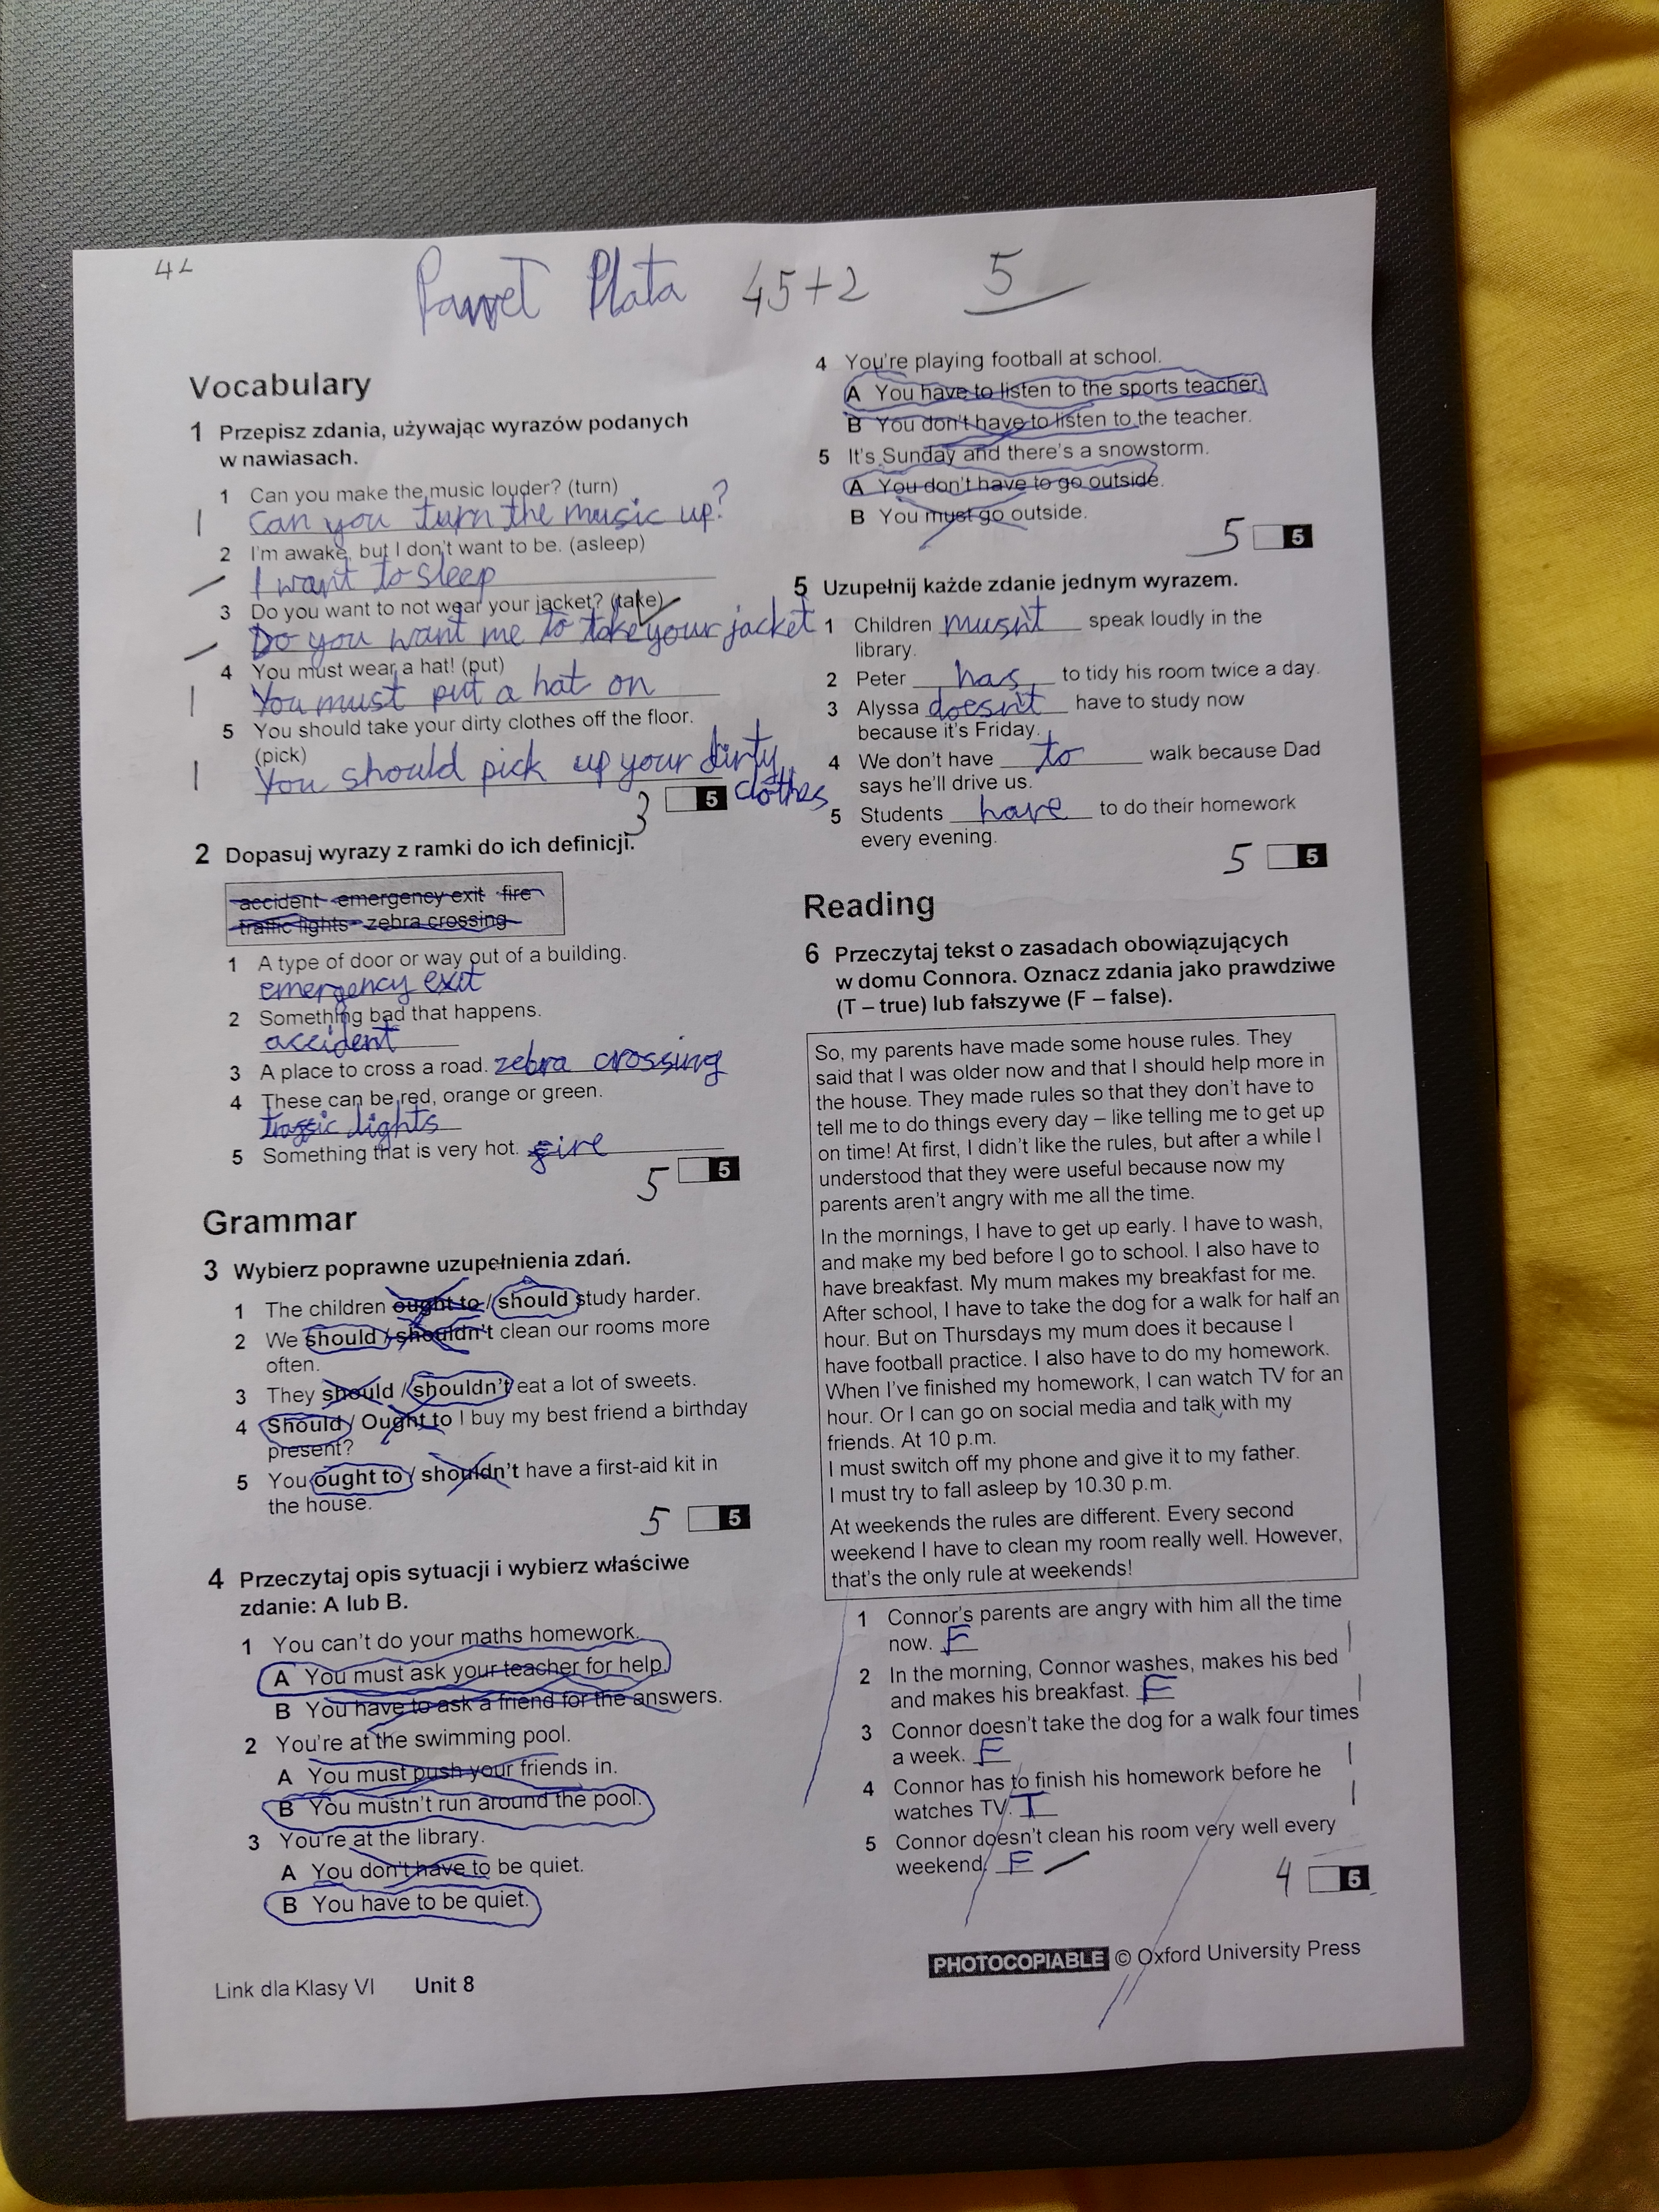 Paweł Plata 45+2 5
Vocabulary
1 Przepisz zdania, używając wyrazów podanych
w nawiasach.
1 Can you make the music louder? (turn)
Can you turn the music up?
2 I'm awake, but I don't want to be. (asleep)
I want to sleep
3 Do you want to not wear your jacket? (take)
Do you want me to take your jacket
4 You must wear a hat! (put)
You must put a hat on
5 You should take your dirty clothes off the floor.
(pick)
You should pick up your dirty
clothes
3 5
2 Dopasuj wyrazy z ramki do ich definicji.
accident emergency exit fire
traffic lights zebra crossing
1 A type of door or way out of a building.
emergency exit
2 Something bad that happens.
accident
3 A place to cross a road. zebra crossing
4 These can be red, orange or green.
traffic lights
5 Something that is very hot. fire
5 5
Grammar
3 Wybierz poprawne uzupełnienia zdań.
1 The children ought to / should study harder.
2 We should / shouldn't clean our rooms more
often.
3 They should / shouldn't eat a lot of sweets.
4 Should / Ought to I buy my best friend a birthday
present?
5 You ought to / shouldn't have a first-aid kit in
the house.
5 5
4 Przeczytaj opis sytuacji i wybierz właściwe
zdanie: A lub B.
1 You can't do your maths homework.
A You must ask your teacher for help.
B You have to ask a friend for the answers.
2 You're at the swimming pool.
A You must push your friends in.
B You mustn't run around the pool.
3 You're at the library.
A You don't have to be quiet.
B You have to be quiet.
4 You're playing football at school.
A You have to listen to the sports teacher.
B You don't have to listen to the teacher.
5 It's Sunday and there's a snowstorm.
A You don't have to go outside.
B You must go outside.
5 5
5 Uzupełnij każde zdanie jednym wyrazem.
1 Children musn't speak loudly in the
library.
2 Peter has to tidy his room twice a day.
3 Alyssa doesn't have to study now
because it's Friday.
4 We don't have to walk because Dad
says he'll drive us.
5 Students have to do their homework
every evening.
5 5
Reading
6 Przeczytaj tekst o zasadach obowiązujących
w domu Connora. Oznacz zdania jako prawdziwe
(T – true) lub fałszywe (F – false).
So, my parents have made some house rules. They
said that I was older now and that I should help more in
the house. They made rules so that they don't have to
tell me to do things every day – like telling me to get up
on time! At first, I didn't like the rules, but after a while I
understood that they were useful because now my
parents aren't angry with me all the time.
In the mornings, I have to get up early. I have to wash,
and make my bed before I go to school. I also have to
have breakfast. My mum makes my breakfast for me.
After school, I have to take the dog for a walk for half an
hour. But on Thursdays my mum does it because I
have football practice. I also have to do my homework.
When I've finished my homework, I can watch TV for an
hour. Or I can go on social media and talk with my
friends. At 10 p.m.
I must switch off my phone and give it to my father.
I must try to fall asleep by 10.30 p.m.
At weekends the rules are different. Every second
weekend I have to clean my room really well. However,
that's the only rule at weekends!
1 Connor's parents are angry with him all the time
now. F
2 In the morning, Connor washes, makes his bed
and makes his breakfast. F
3 Connor doesn't take the dog for a walk four times
a week. F
4 Connor has to finish his homework before he
watches TV. T
5 Connor doesn't clean his room very well every
weekend. F
4 5
PHOTOCOPIABLE © Oxford University Press
Link dla Klasy VI Unit 8